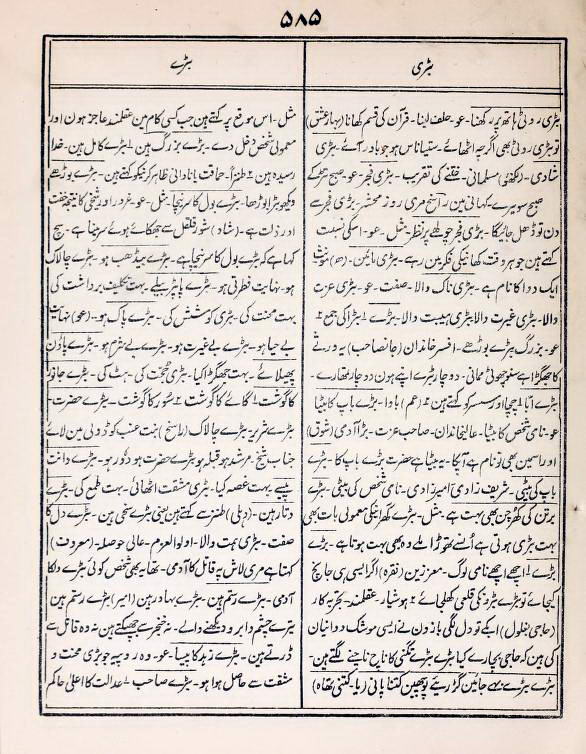 ۵۸۵
بڑی
بڑے
بڑی روٹی ہاتھ پر رکھنا - عو - حلف لینا - قرآن کی قسم کھانا (بہار عشق)
تو بڑی روٹی بھی اگرچہ اٹھائے - ستیاناس ہو جو باور آئے - بڑی
شادی - (لکھنؤ) مسلمانی - ختنے کی تقریب - بڑی فجر - عو - صبح تڑکے
صبح سویرے - کہانی مین راسخ مری روز محشر - بڑی فجر سے
دن تو ڈھل جائیگا - بڑی فجر چولھے پر نظر - مثل - عو - اسکی نسبت
کہتے ہین جو ہر وقت کھانیکی فکر مین رہے - بڑی مائین - (ھ) مونث
ایک دوا کا نام ہے - بڑی ناک والا - صفت - عو - بڑی عزت
والا - بڑی غیرت والا - بڑی ہیبت والا - بڑے ۱ بڑا کی جمع ۲
عو - بزرگ - بڑے بوڑھے - افسر خاندان (جانصاحب) یہ ورثے
کا جھگڑا ہے سنو چھوٹی ممانی - دو چار بڑے اپنے ہون دو چار تمھارے -
بڑے ابا ۱ چچا اور سسر کو کہتے ہین ۲ (عم) بادا - بڑے باپ کا بیٹا
عو - نامی شخص کا بیٹا - عالیخاندان - صاحب عزت - بڑا آدمی (شوق)
اور اسمین بھی تو نام ہے آپکا - یہ بیٹا ہے حضرت بڑے باپ کا - بڑے
باپ کی بیٹی - شریف زادی - امیر زادی - نامی شخص کی بیٹی - بڑے
برتن کی کھرچن بھی بہت ہے - مثل - بڑے گھرانیکی معمولی بات بھی
بہت بڑی ہوتی ہے اُنسے تھوڑا ملے وہ بھی بہت ہوتا ہے - بڑے
بڑے ۱ اچھے اچھے نامی لوگ - معززین (نقرہ) اگر ایسی ہی جانچ
کیجائے تو بڑے بڑونکی قلعی کھلجائے ۲ ہوشیار - عقلمند - تجربہ کار
(حاجی بغلول) ابکے تو دل لگی بازون نے ایسی موشک دوانیان
کی ہین کہ حاجی بچارے کیا بڑے بڑے تگنی کا ناچ ناچنے لگتے ہین -
بڑے بڑے بہے جائین گڈریئے پوچھین کتنا پانی (یا - کتنی تھاہ)
مثل - اس موقع پہ کہتے ہین جب کسی کام مین عقلمند عاجز ہون اور
معمولی شخص دخل دے - بڑے بزرگ ہین ۱ بڑے کامل ہین - خدا
رسیدہ ہین ۲ طنزاً - حماقت یا نادانی ظاہر کرنیکو کہتے ہین - بڑے بوڑھے
دیکھو بڑا بوڑھا - بڑے بول کا سر نیچا - مثل - عو - غرور اور شیخی کا نتیجہ خفت
اور ذلت ہے - (شاد) شور قلقل سے جھکائے ہوئے سر مینا ہے - سچ
کہا ہے کہ بڑے بول کا سر نیچا ہے - بڑے بیڈھب ہو - بڑے چالاک
ہو - نہایت فطرتی ہو - بڑے پاپڑ بیلے - بہت تکلیف برداشت کی -
بہت محنت کی - بڑی کوشش کی - بڑے پاک ہو - (عو) نہایت
بے حیا ہو - بڑے بے غیرت ہو - بڑے بے شرم ہو - بڑے پاؤن
پھیلائے - بہت جھگڑا کیا - بڑی حُجت کی - ہٹ کی - بڑے جانور
کا گوشت ۱ گائے کا گوشت ۲ سُور کا گوشت - بڑے حضرت -
بڑے شریر - بڑے چالاک (راسخ) بنت عنب کو ڈولی مین لائے
جناب شیخ - مرشد ہو قبلہ ہو بڑے حضرت ہو دور ہو - بڑے دانت
پیسے - بہت غصہ کیا - بڑی مشقت اٹھائی - بہت طمع کی - بڑے
دتار ہین - (دہلی) طنز سے کہتے ہین یعنی بڑے سخی ہین - بڑے دل کا
صفت - بڑی ہمت والا - اولوالعزم - عالی حوصلہ - (معروف)
کہتا ہے مری لاش پہ قاتل کا آدمی - تھا یہ بھی شخص کوئی بڑے دلکا
آدمی - بڑے رستم ہین - بڑے بہادر ہین (امیر) بڑے رستم ہین
تیرے چشم و ابرو دیکھنے والے - نہ خنجر سے جھپکتے ہین نہ وہ قاتل سے
ڈرتے ہین - بڑے زید کا پیسا - عو - وہ روپیہ جو بڑی محنت و
مشقت سے حاصل ہوا ہو - بڑے صاحب ۱ عدالت کا اعلیٰ حاکم